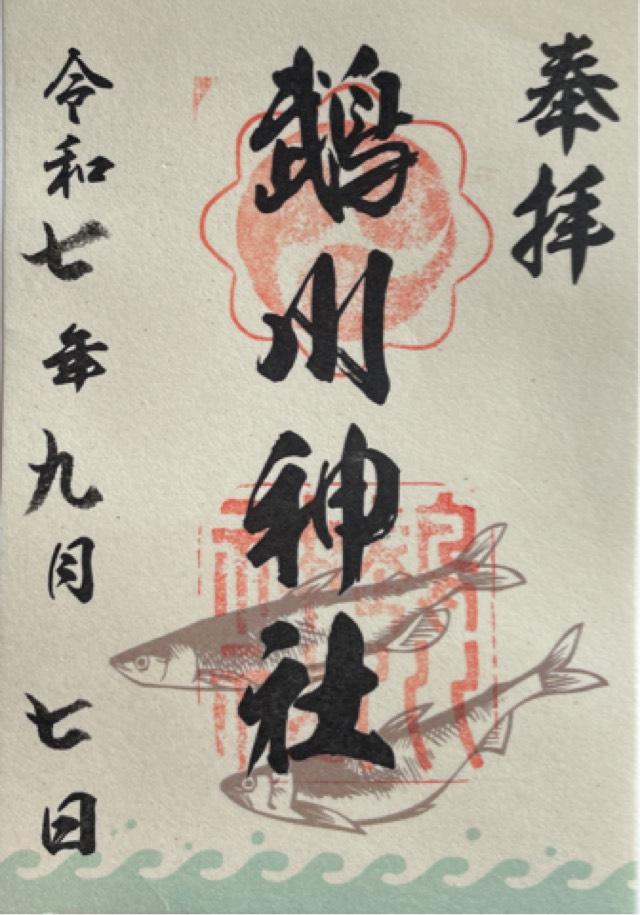 奉拝
鵡川神社
令和七年九月七日